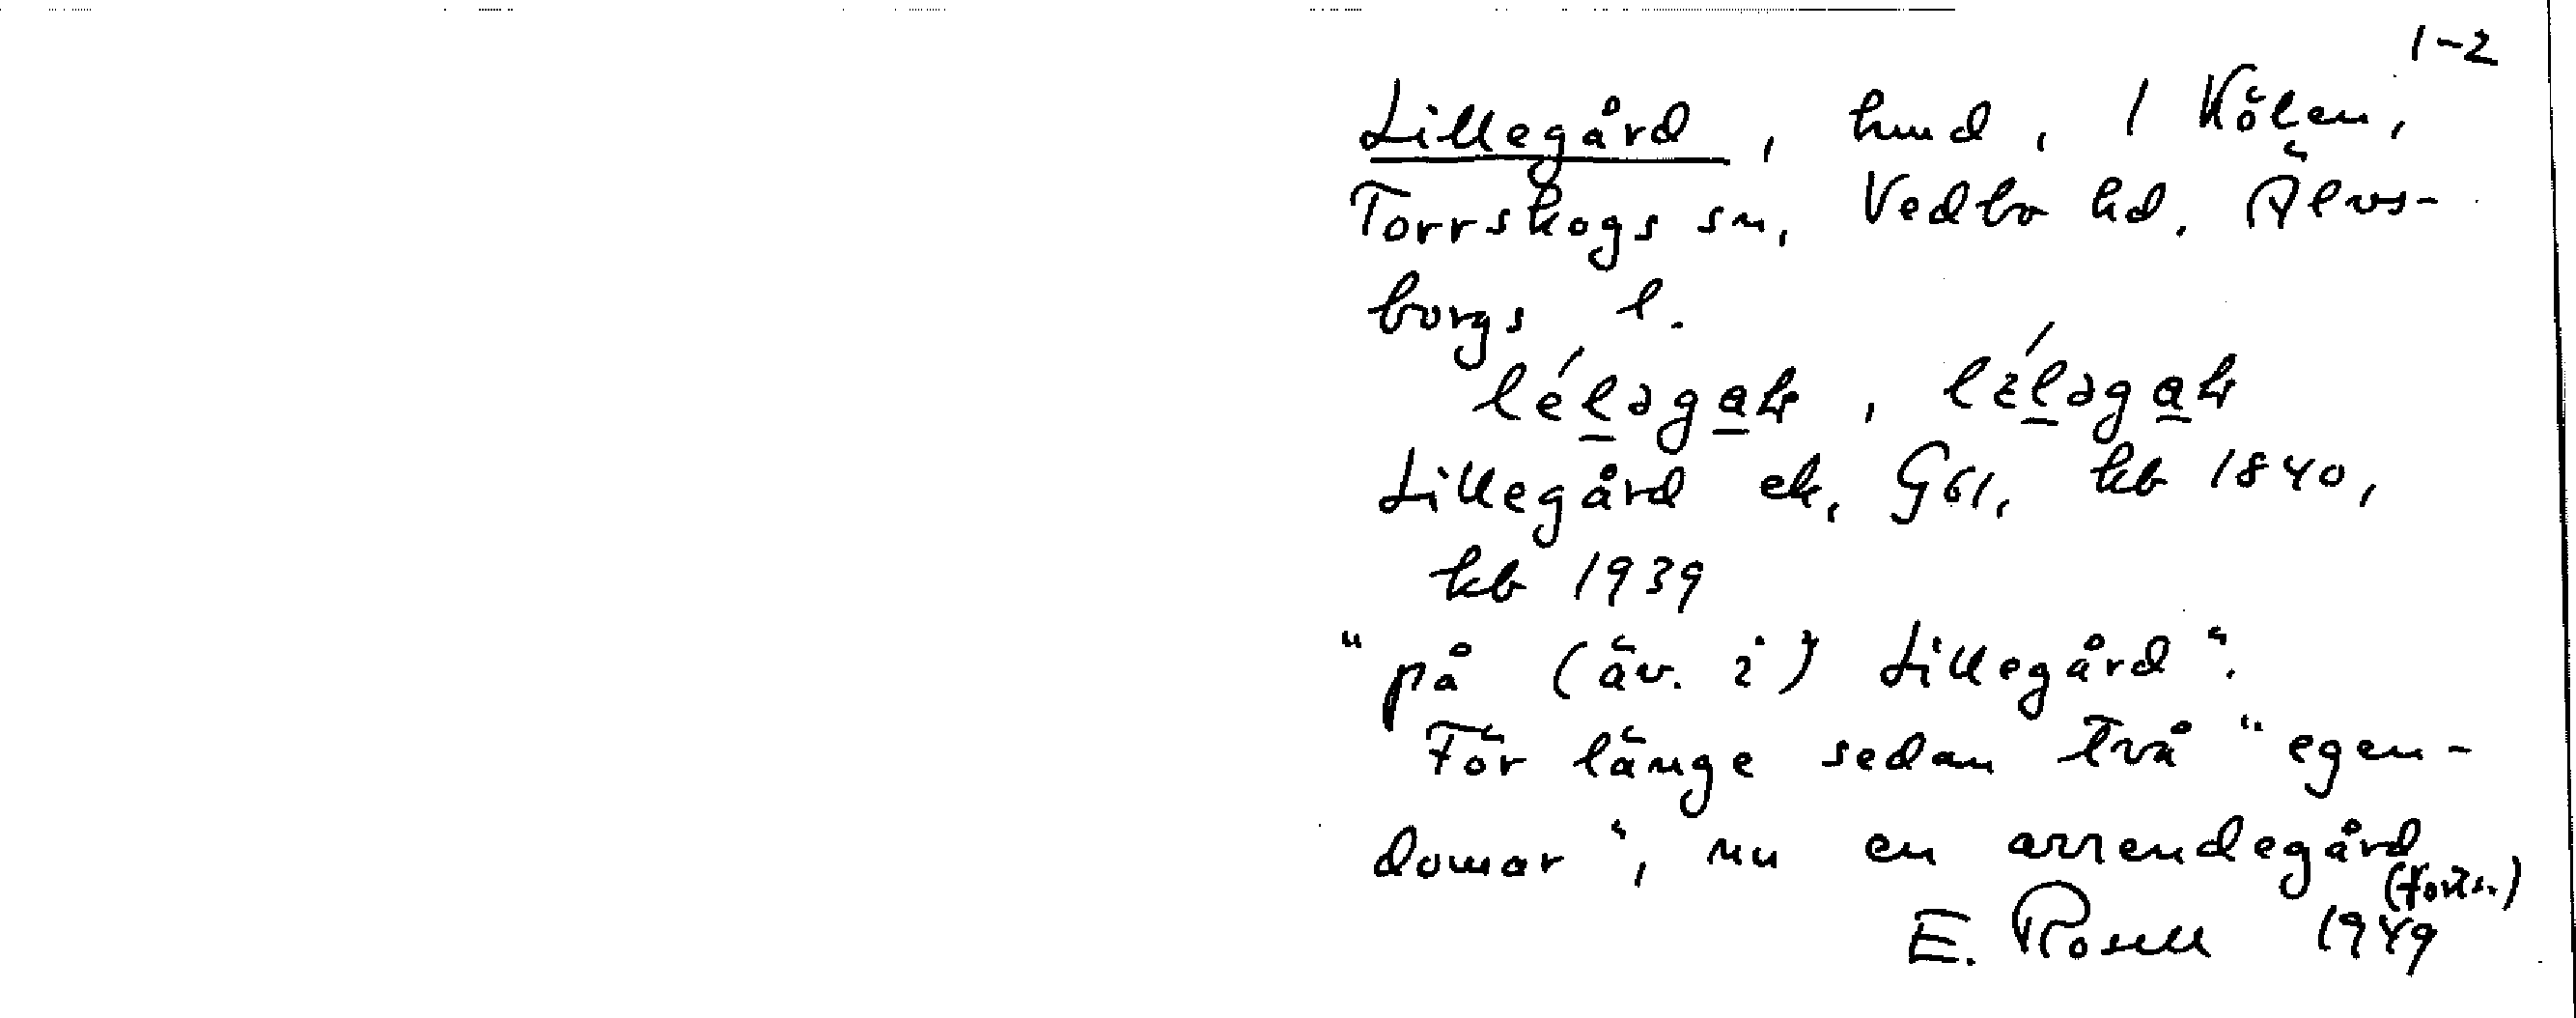 1-2
Lillegård, hmd, 1 Kölen,
Torrskogs sn, Vedbo hd. Älvs-
borgs l.
Lillegård ek, G61, kb 1840,
kb 1939
"på (äv. i) Lillegård".
För länge sedan två "egen-
domar", nu en arrendegård
(forts.)
E. Rosell 1949